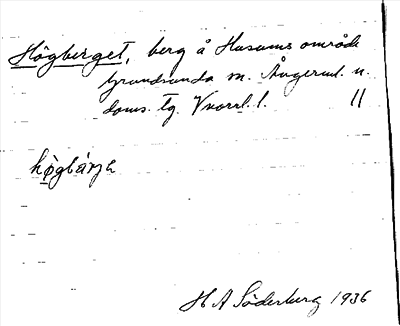 Högberget, berg å Husums område
Grundsunda sn. Ångerml. n.
doms. tg. Vnorrl. l. 11
högbärjə
H A Söderberg 1936